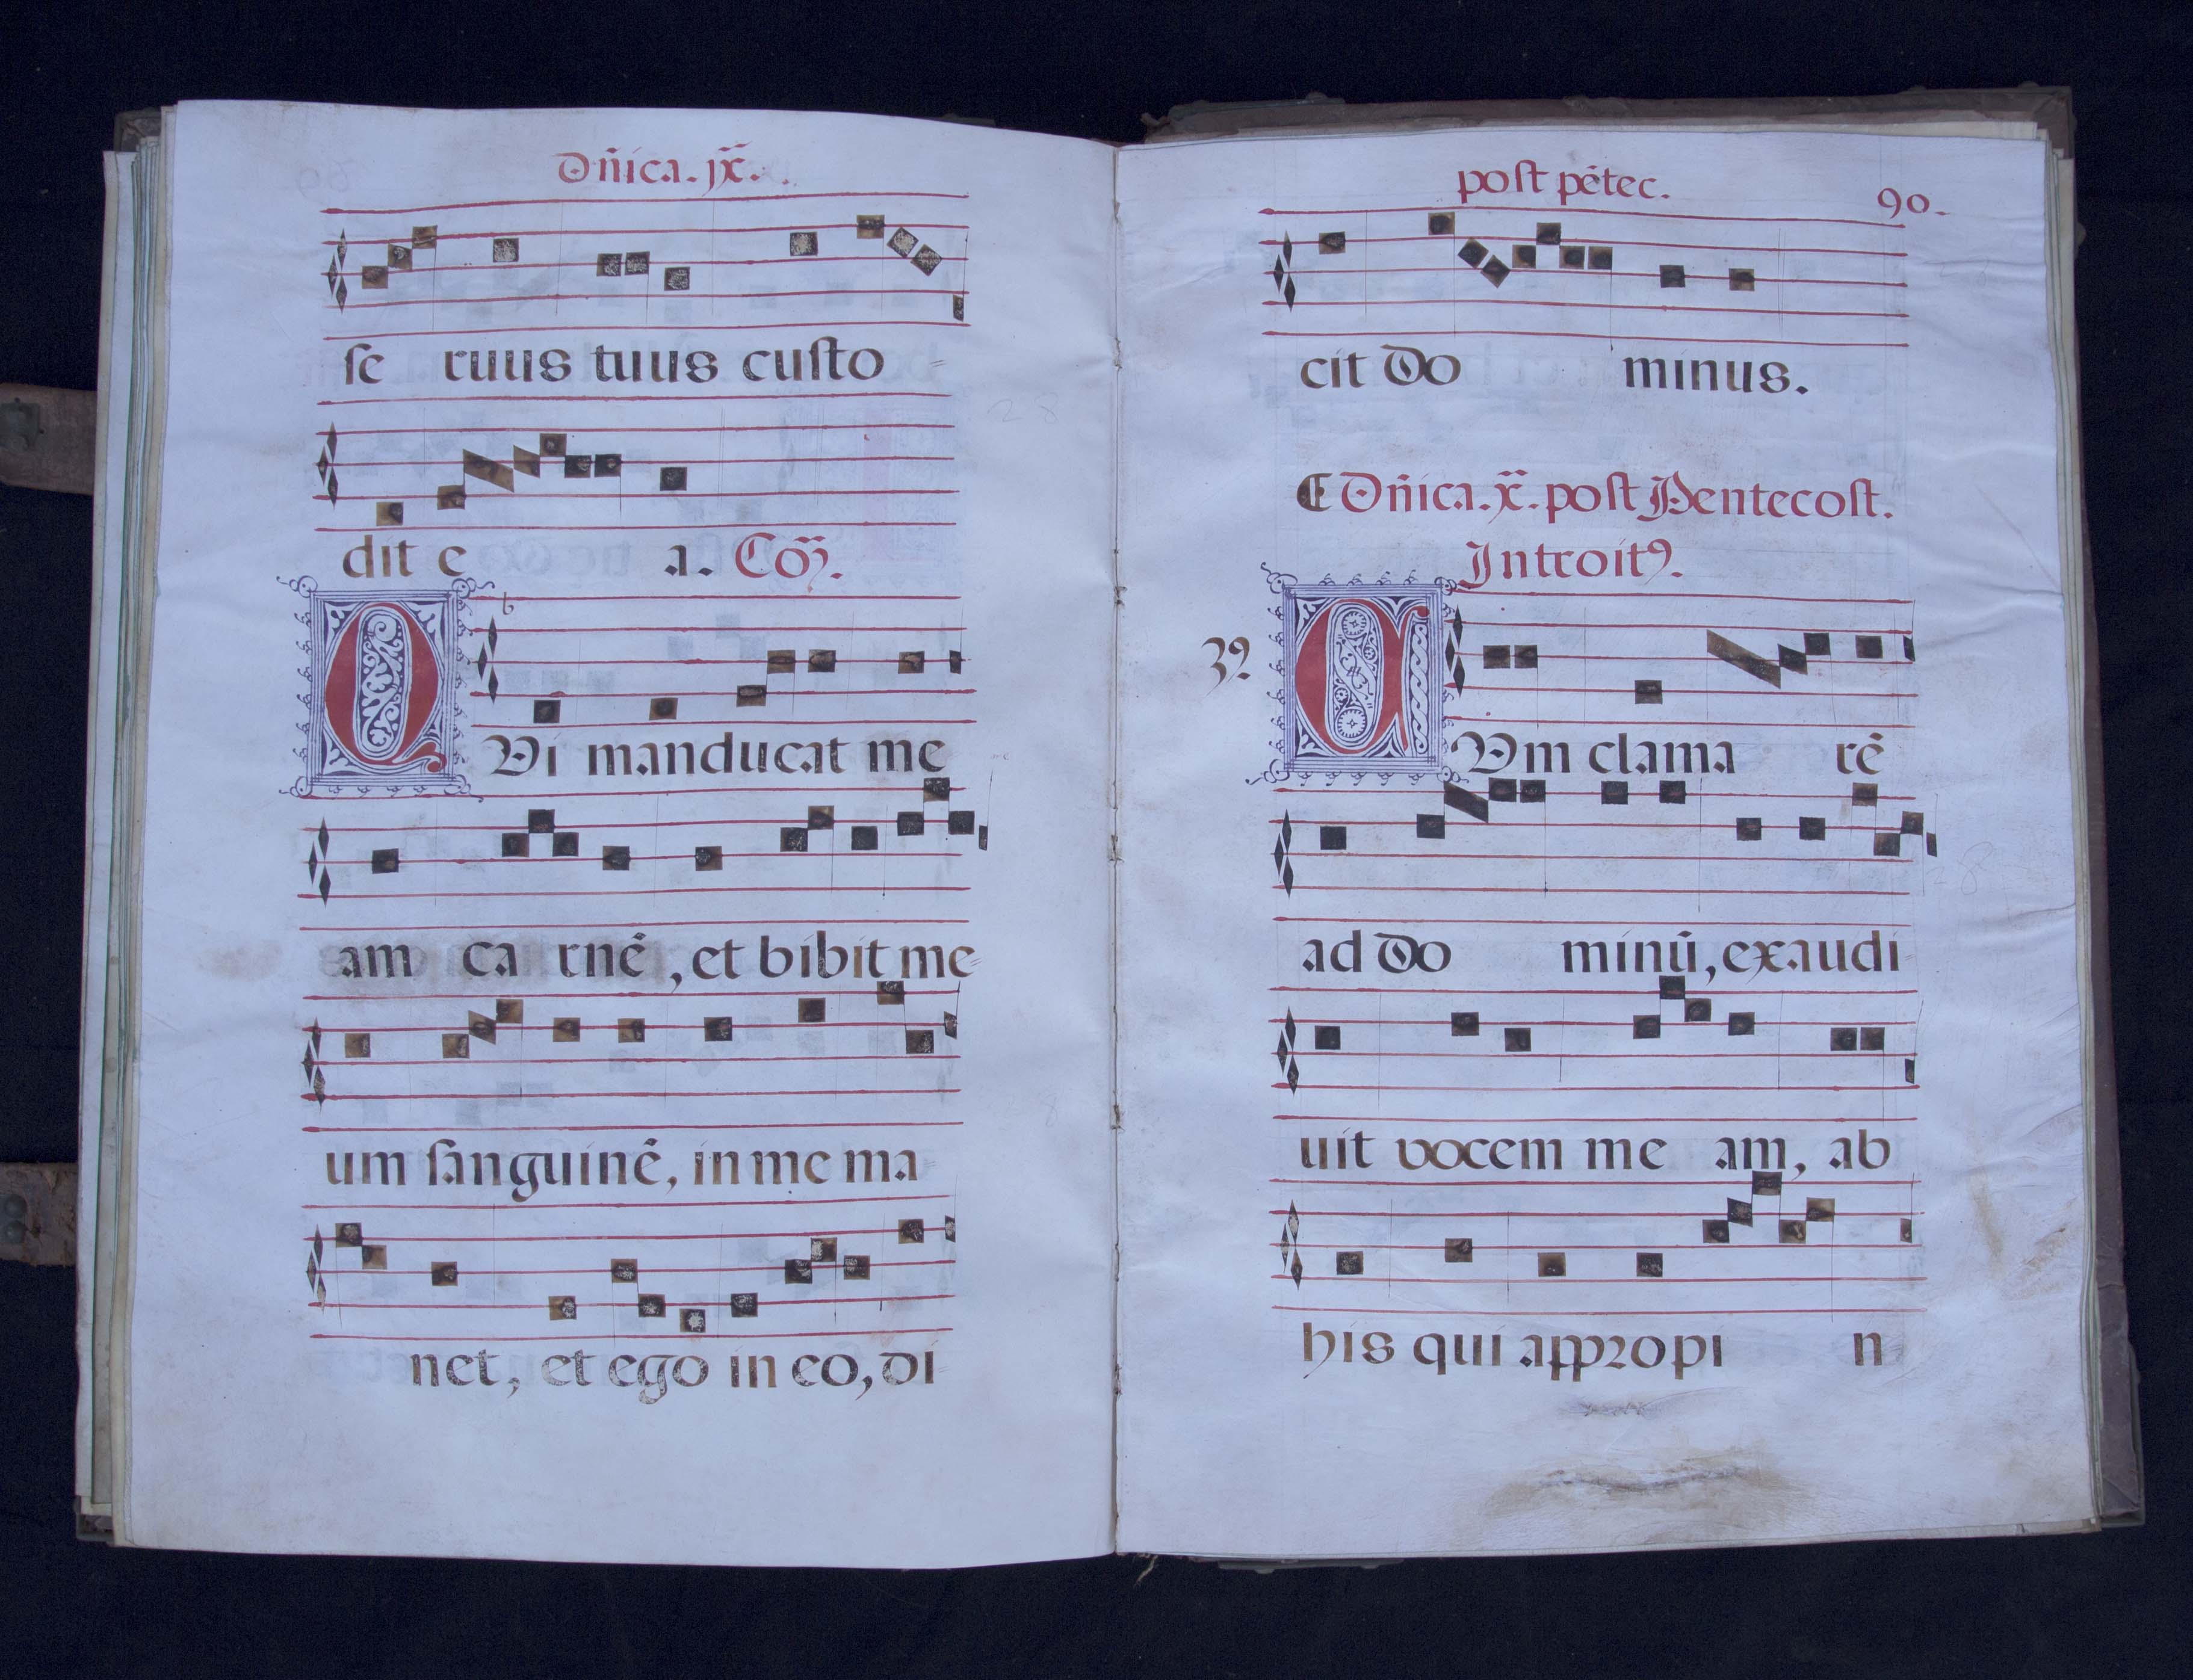 Dñica. ix̃.
se ruus tuus custo
dit e a. Cõȝ.
QVi manducat me
am ca rnẽ, et bibit me
um sanguinẽ, in me ma
net, et ego in eo, di
post pẽtec. 90.
cit Do minus.
Dñica. x̃. post Pentecost.
Introitꝰ.
CVm clama rẽ
ad Do minũ, exaudi
uit vocem me am, ab
his qui appropi n